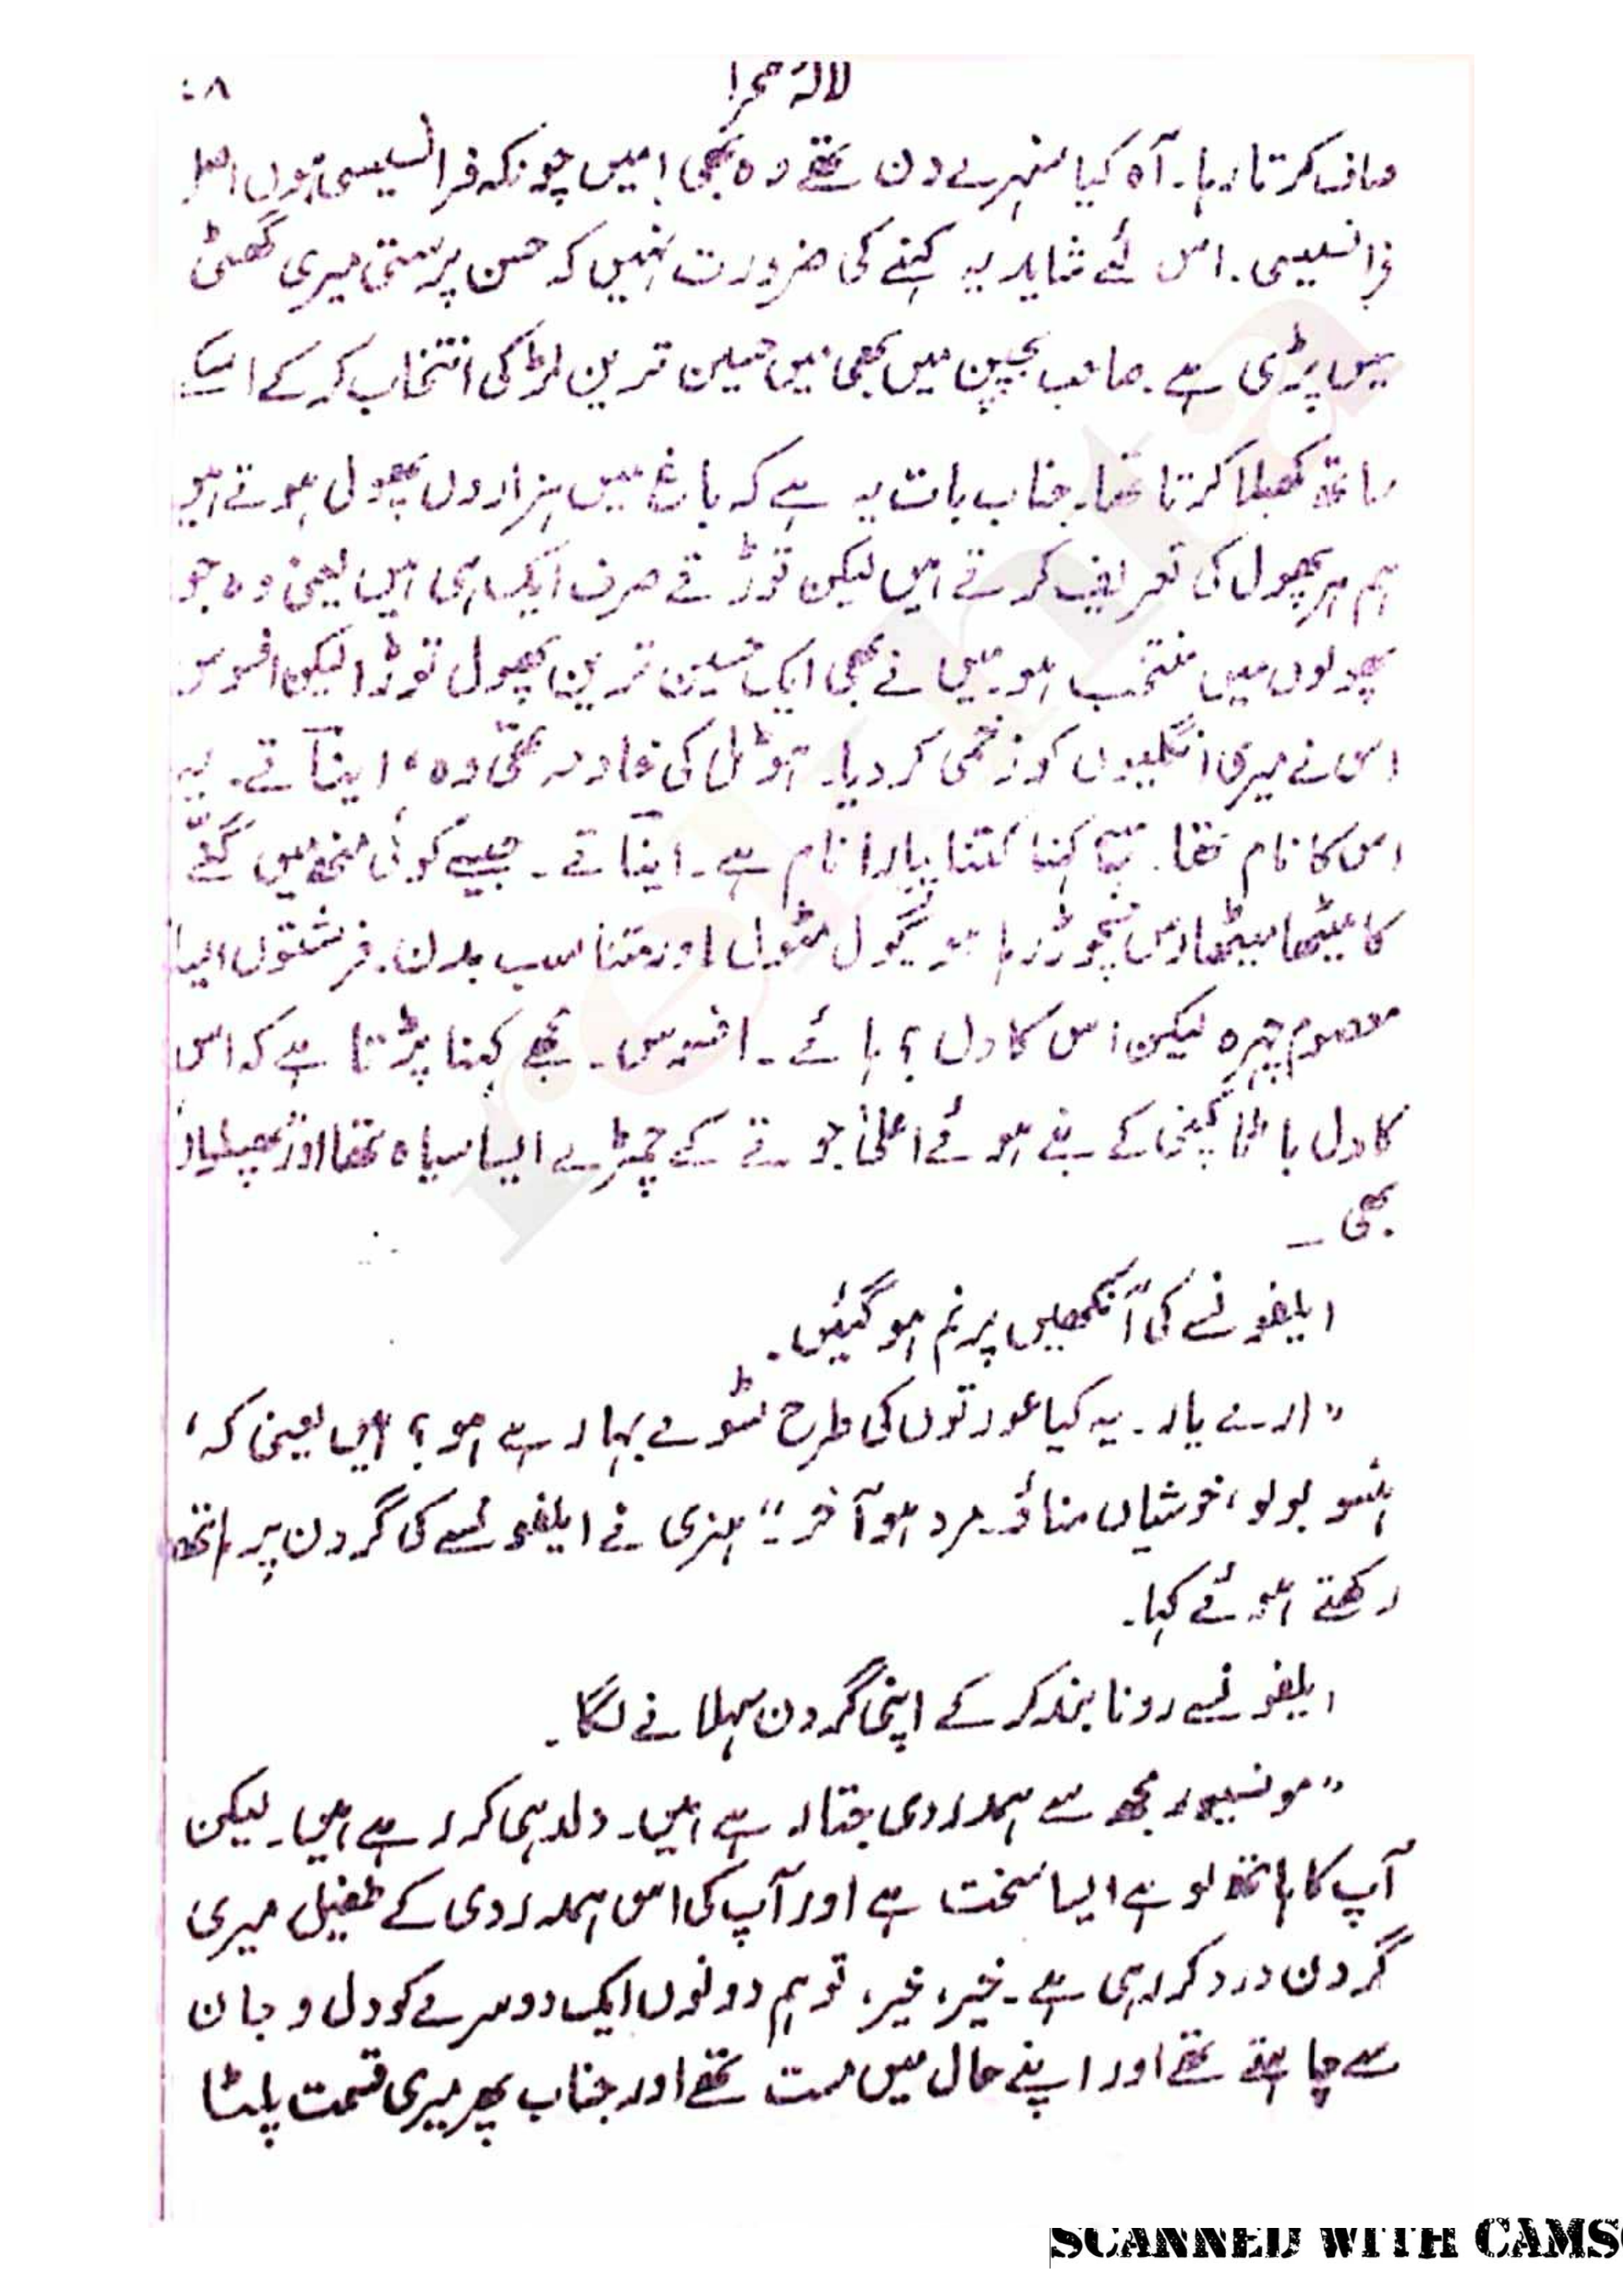 لالۂ صحرا
صاف کرتا رہا۔ آہ کیا سنہرے دن تھے وہ بھی! میں چونکہ فرانسیسی ہوں اصل
فرانسیسی۔ اس لئے شاید یہ کہنے کی ضرورت نہیں کہ حسن پرستی میری گھٹی
میں پڑی ہے۔ صاحب بچپن میں بھی میں حسین ترین لڑکی انتخاب کر کے اسکے
ساتھ کھیلا کرتا تھا۔ جناب بات یہ ہے کہ باغ میں ہزاروں پھول ہوتے ہیں
ہم ہر پھول کی تعریف کرتے ہیں لیکن توڑتے صرف ایک ہی ہیں یعنی وہ جو
پھولوں میں منتخب ہو۔ میں نے بھی ایک حسین ترین پھول توڑا لیکن افسوس
اس نے میری انگلیوں کو زخمی کر دیا۔ ہوٹل کی خادمہ تھی وہ، اینآتے۔ یہ
اس کا نام تھا۔ کتنا پیارا نام ہے۔ اینآتے۔ جیسے کوئی منھ میں گنّے
کا میٹھا میٹھا رس نچوڑ رہا ہو گول مٹول اور متناسب بدن۔ فرشتوں ایسا
معصوم چہرہ لیکن اس کا دل؟ ہائے۔ افسوس۔ مجھے کہنا پڑتا ہے کہ اس
کا دل باٹا کمپنی کے بنے ہوئے اعلیٰ جوتے کے چمڑے ایسا سیاہ تھا اور
بھی۔
ایلفونسے کی آنکھیں پرنم ہو گئیں۔
”ارے یار۔ یہ کیا عورتوں کی طرح ٹسوے بہا رہے ہو؟ ایں یعنی کہ،
ہنسو بولو، خوشیاں مناؤ۔ مرد ہو آخر۔“ ہنری نے ایلفونسے کی گردن پر ہاتھ
رکھتے ہوئے کہا۔
ایلفونسے رونا بند کر کے اپنی گردن سہلانے لگا۔
”مونسیور مجھ سے ہمدردی جتا رہے ہیں۔ دلدہی کر رہے ہیں۔ لیکن
آپ کا ہاتھ لوہے ایسا سخت ہے اور آپ کی اس ہمدردی کے طفیل میری
گردن درد کر رہی ہے۔ خیر، خیر، تو ہم دونوں ایک دوسرے کو دل و جان
سے چاہتے تھے اور اپنے حال میں مست تھے اور جناب پھر میری قسمت پلٹا
SCANNED WITH CAMS